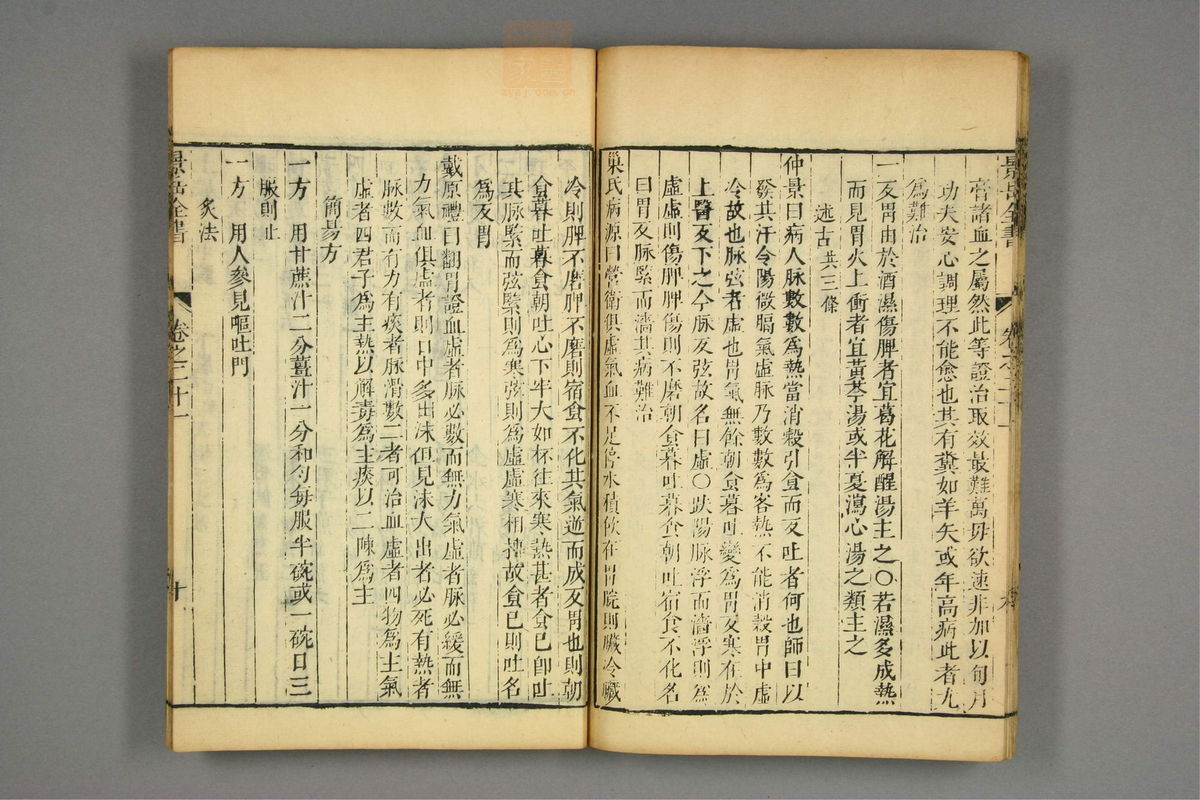 景岳全書
卷之二十一
膏諸血之屬然此等證治取效最難萬毋欲速非加以旬月
功夫安心調理不能愈也其有糞如羊矢或年高病此者尤
為難治
一反胃由於酒濕傷脾者宜葛花解酲湯主之○若濕多成熱
而見胃火上衝者宜黃芩湯或半夏瀉心湯之類主之
述古共三條
仲景曰病人脉數數為熱當消穀引食而反吐者何也師曰以
發其汗令陽微膈氣虛脉乃數數為客熱不能消穀胃中虛
冷故也脉弦者虛也胃氣無餘朝食暮吐變為胃反寒在於
上醫反下之今脉反弦故名曰虛○趺陽脉浮而濇浮則為
虛虛則傷脾脾傷則不磨朝食暮吐暮食朝吐宿食不化名
曰胃反脉緊而濇其病難治
巢氏病源曰營衛俱虛氣血不足停水積飲在胃脘則臟冷臟
冷則脾不磨脾不磨則宿食不化其氣逆而成反胃也則朝
食暮吐暮食朝吐心下牢大如杯往來寒熱甚者食已即吐
其脉緊而弦緊則為寒弦則為虛虛寒相摶故食已則吐名
為反胃
戴原禮曰翻胃證血虛者脉必數而無力氣虛者脉必緩而無
力氣血俱虛者則口中多出沫但見沫大出者必死有熱者
脉數而有力有痰者脉滑數二者可治血虛者四物為主氣
虛者四君子為主熱以解毒為主痰以二陳為主
簡易方
一方 用甘蔗汁二分薑汁一分和勻每服半碗或一碗日三
服則止
一方 用人參見嘔吐門
灸法
景岳全書
卷之二十一
十